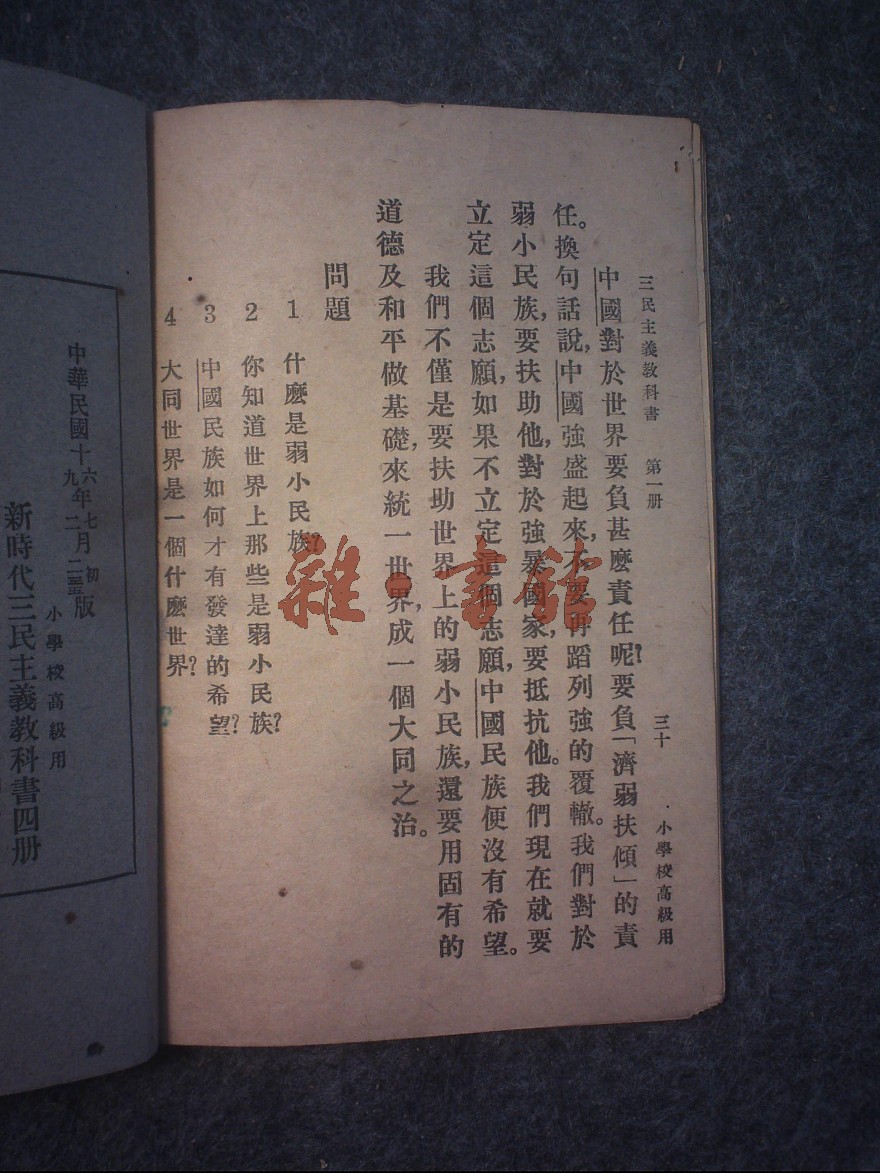 三民主義教科書 第一册 三十 小學校高級用
中國對於世界要負甚麽責任呢?要負「濟弱扶傾」的責
任。換句話說,中國強盛起來,不要再蹈列強的覆轍。我們對於
弱小民族,要扶助他,對於強暴國家,要抵抗他。我們現在就要
立定這個志願,如果不立定這個志願,中國民族便沒有希望。
我們不僅是要扶助世界上的弱小民族,還要用固有的
道德及和平做基礎,來統一世界,成一個大同之治。
問題
1 什麽是弱小民族?
2 你知道世界上那些是弱小民族?
3 中國民族如何才有發達的希望?
4 大同世界是一個什麽世界?
雜·書館
中華民國十六年七月初版
九年二
小學校高級用
新時代三民主義教科書四册